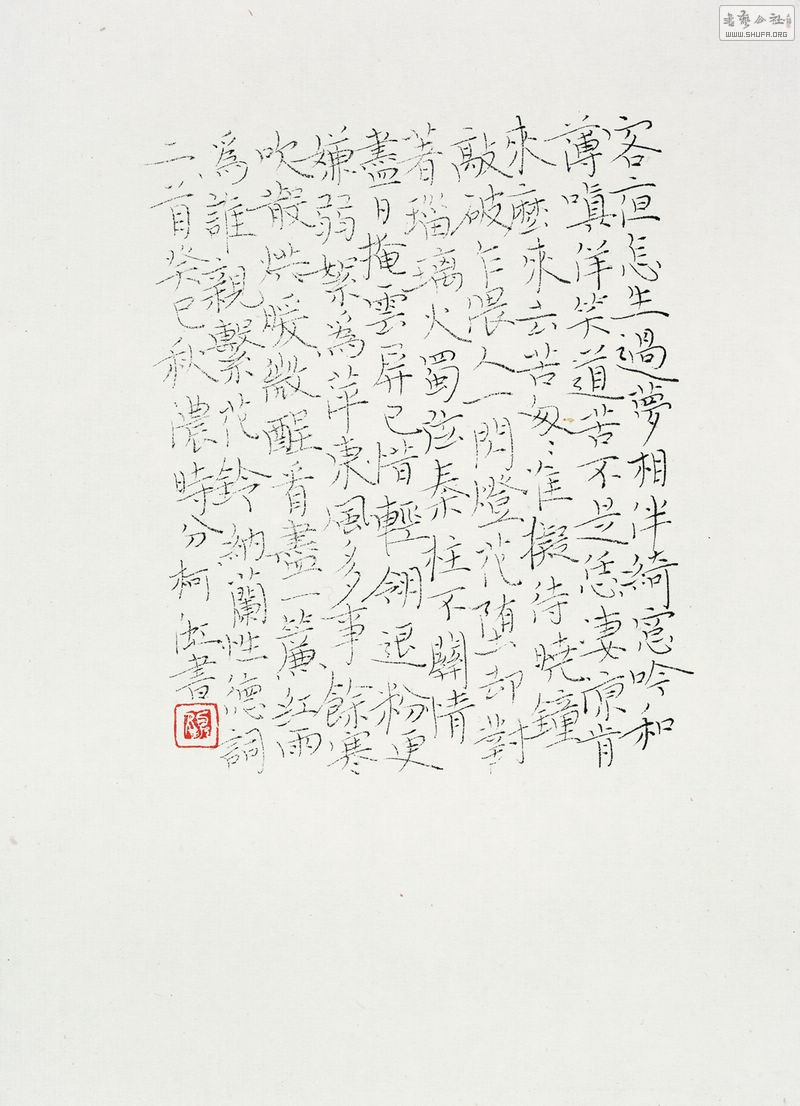 客夜怎生過夢相伴綺窗吟和
薄嗔佯笑道若不是恁淒涼肯
來麼來去苦匆〻准擬待曉鐘
敲破乍偎人一閃燈花堕却對
著瑠璃火蜀弦秦柱不關情
盡日掩雲屏已惜輕翎退粉更
嫌弱絮為萍東風多事餘寒
吹散烘暖微酲看盡一簾紅雨
為誰親繫花鈴納蘭性德詞
二首癸巳秋濃時分柯虹書
書藝公社
WWW.SHUFA.ORG